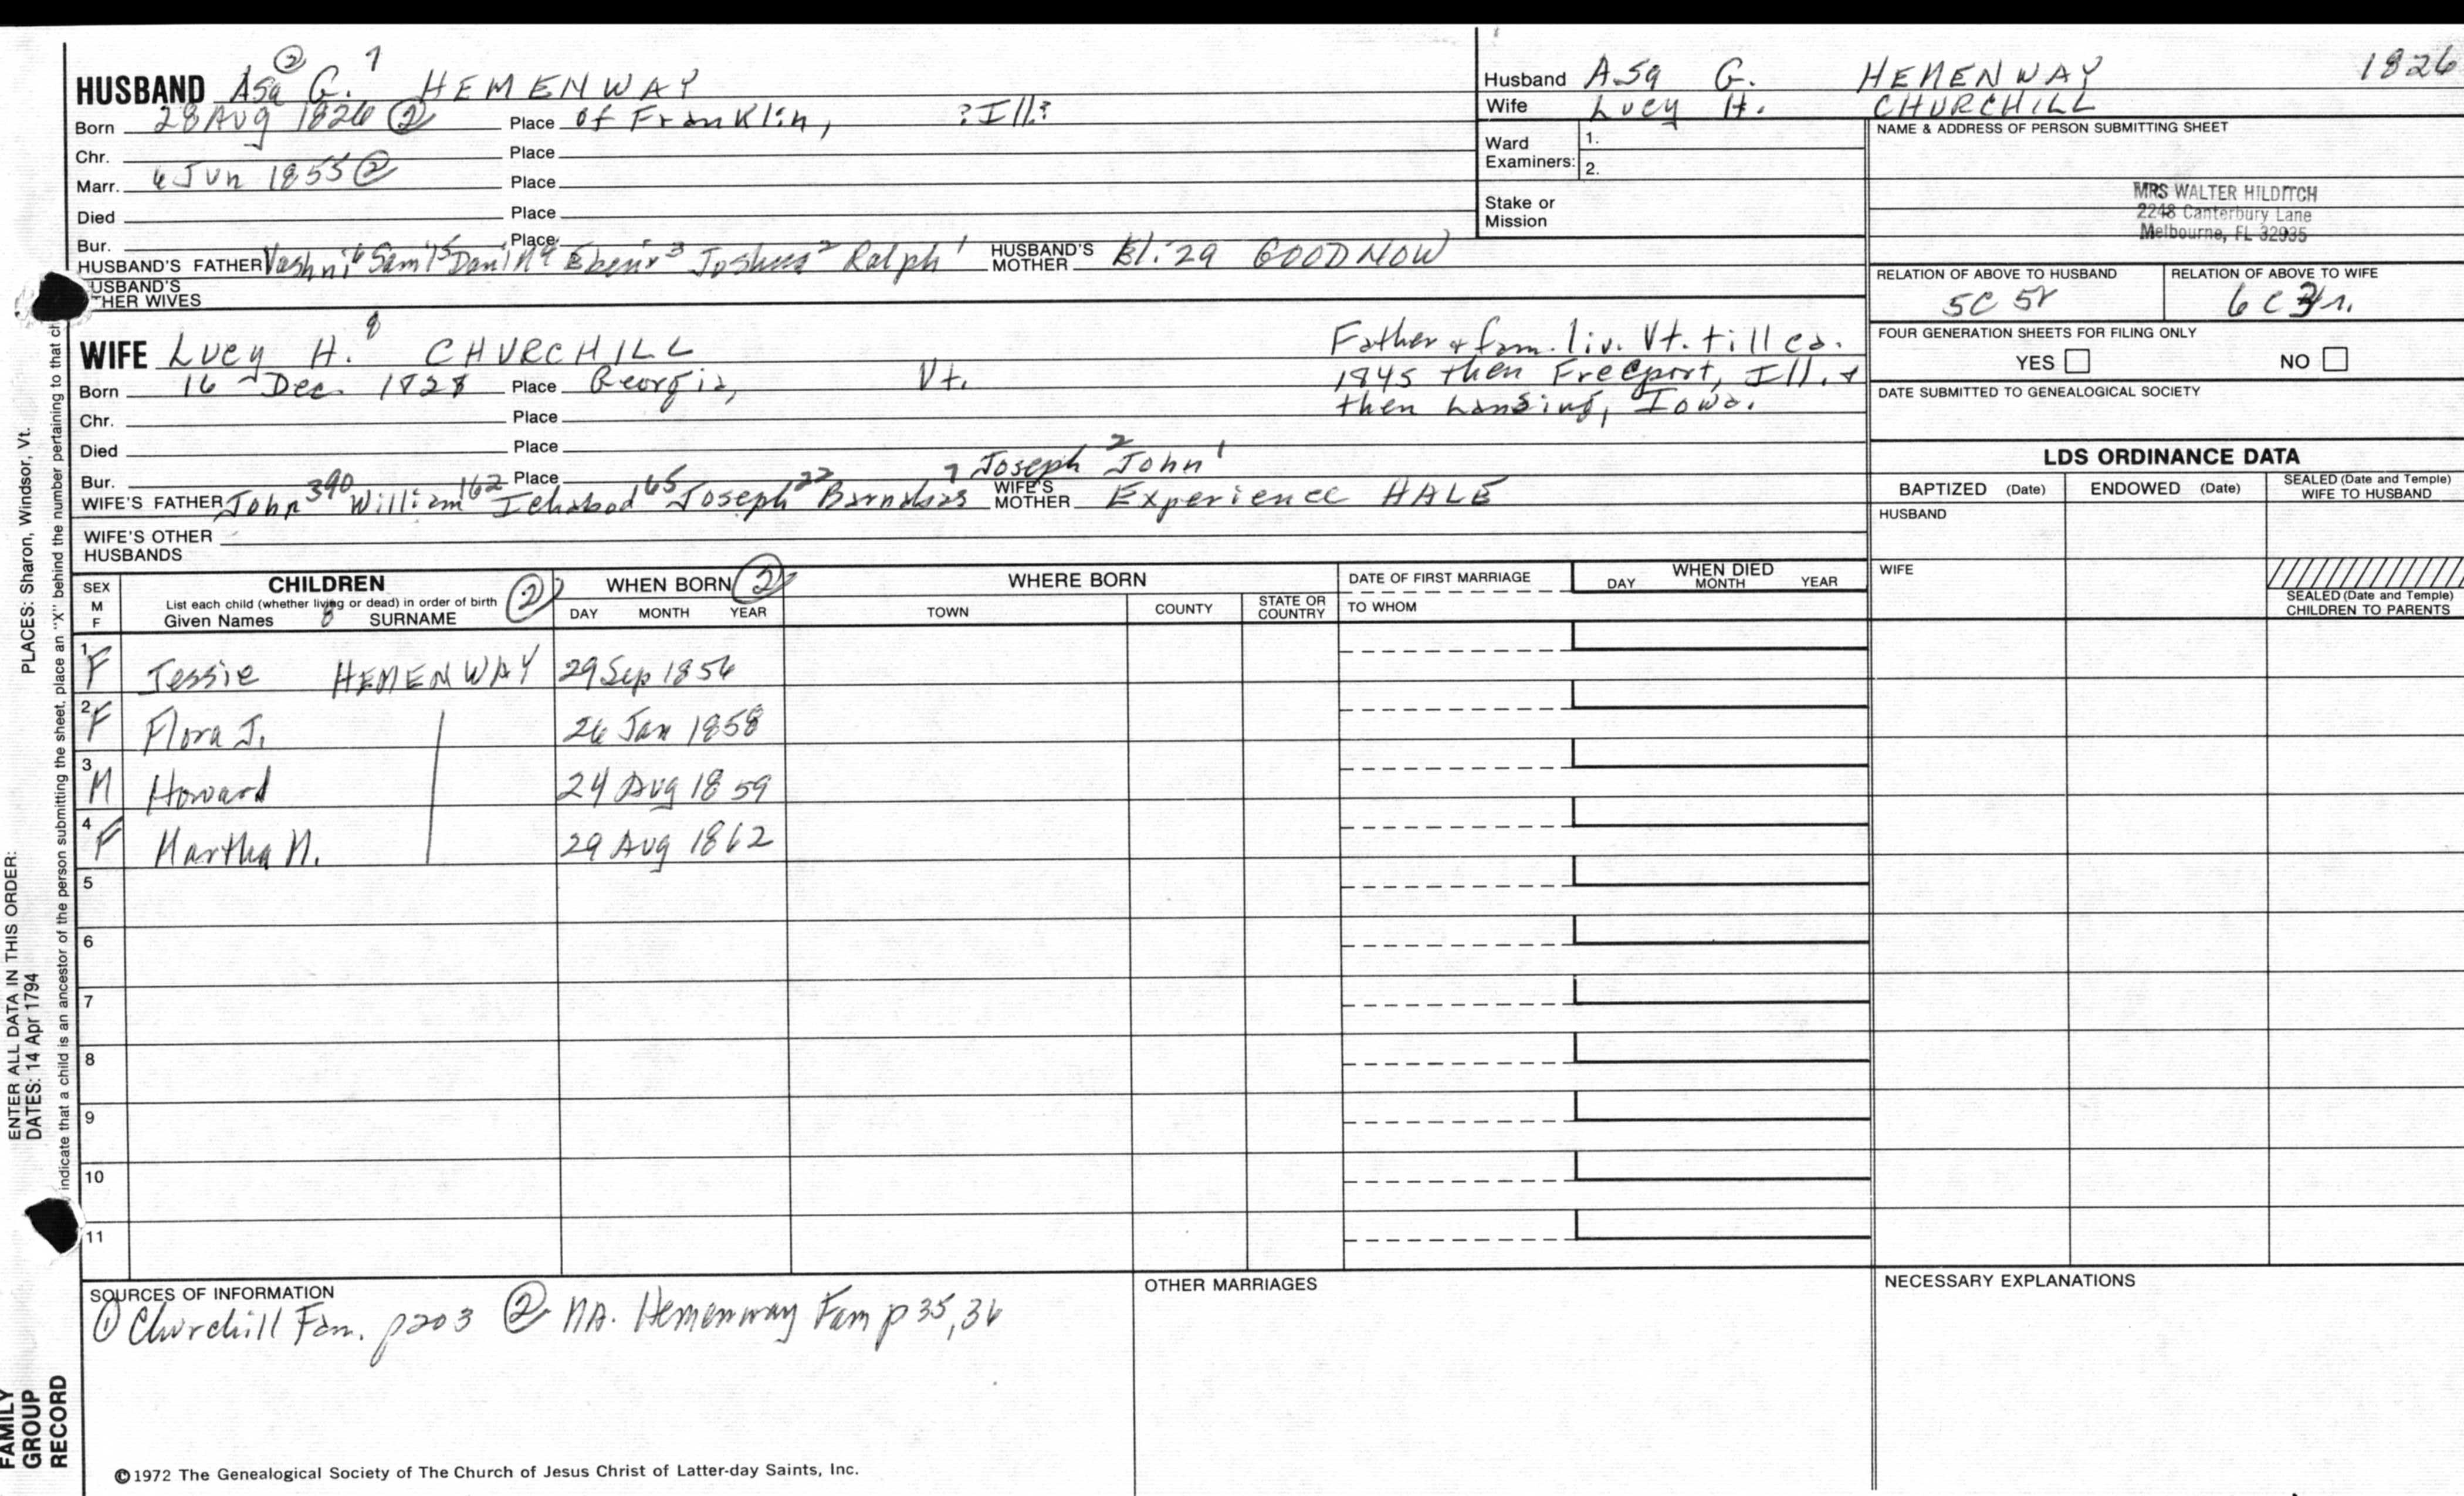 HUSBAND Asa ② G. 7 HEMENWAY
Born 28 Aug 1826 ② Place of Franklin, ?Ill?
Chr. Place
Marr. 6 Jun 1855 ② Place
Died Place
Bur. Place
HUSBAND'S FATHER Vashni 6 Sam'l 5 Dani'l 4 Ebenr 3 Joshua 2 Ralph 1 HUSBAND'S MOTHER GOODNOW
USBAND'S
HER WIVES
Husband Asa G. HEMENWAY 1826
Wife Lucy H. CHURCHILL
Ward Examiners: 1.
2.
Stake or Mission
NAME & ADDRESS OF PERSON SUBMITTING SHEET
MRS WALTER HILDITCH
2248 Canterbury Lane
Melbourne, FL 32935
RELATION OF ABOVE TO HUSBAND
5C 5r
RELATION OF ABOVE TO WIFE
6 C r.
FOUR GENERATION SHEETS FOR FILING ONLY
YES NO
DATE SUBMITTED TO GENEALOGICAL SOCIETY
WIFE Lucy H. 8 CHURCHILL
Born 16 Dec. 1828 Place Georgia, Vt.
Father & fam. liv. Vt. till ca.
1845 then Freeport, Ill. &
then Lansing, Iowa.
Chr. Place
Died Place
Bur. Place
Joseph 2 John 1
WIFE'S FATHER John 390 William 162 Ichabod 65 Joseph 22 Barnabas 7 WIFE'S MOTHER Experience HALE
WIFE'S OTHER HUSBANDS
LDS ORDINANCE DATA
BAPTIZED (Date) ENDOWED (Date) SEALED (Date and Temple) WIFE TO HUSBAND
HUSBAND
WIFE
SEALED (Date and Temple) CHILDREN TO PARENTS
SEX M F
CHILDREN ②
List each child (whether living or dead) in order of birth
Given Names 8 SURNAME
WHEN BORN ②
DAY MONTH YEAR
WHERE BORN
TOWN COUNTY STATE OR COUNTRY
DATE OF FIRST MARRIAGE
TO WHOM
WHEN DIED
DAY MONTH YEAR
1 F Jessie HEMENWAY 29 Sep 1856
2 F Flora J. 26 Jan 1858
3 M Howard 24 Aug 1859
4 F Martha M. 29 Aug 1862
5
6
7
8
9
10
11
SOURCES OF INFORMATION
① Churchill Fam. p203 ② Hemenway Fam p 35,36
OTHER MARRIAGES
NECESSARY EXPLANATIONS
©1972 The Genealogical Society of The Church of Jesus Christ of Latter-day Saints, Inc.
FAMILY
GROUP
RECORD
ENTER ALL DATA IN THIS ORDER:
DATES: 14 Apr 1794 PLACES: Sharon, Windsor, Vt.
indicate that a child is an ancestor of the person submitting the sheet, place an "X" behind the number pertaining to that ch